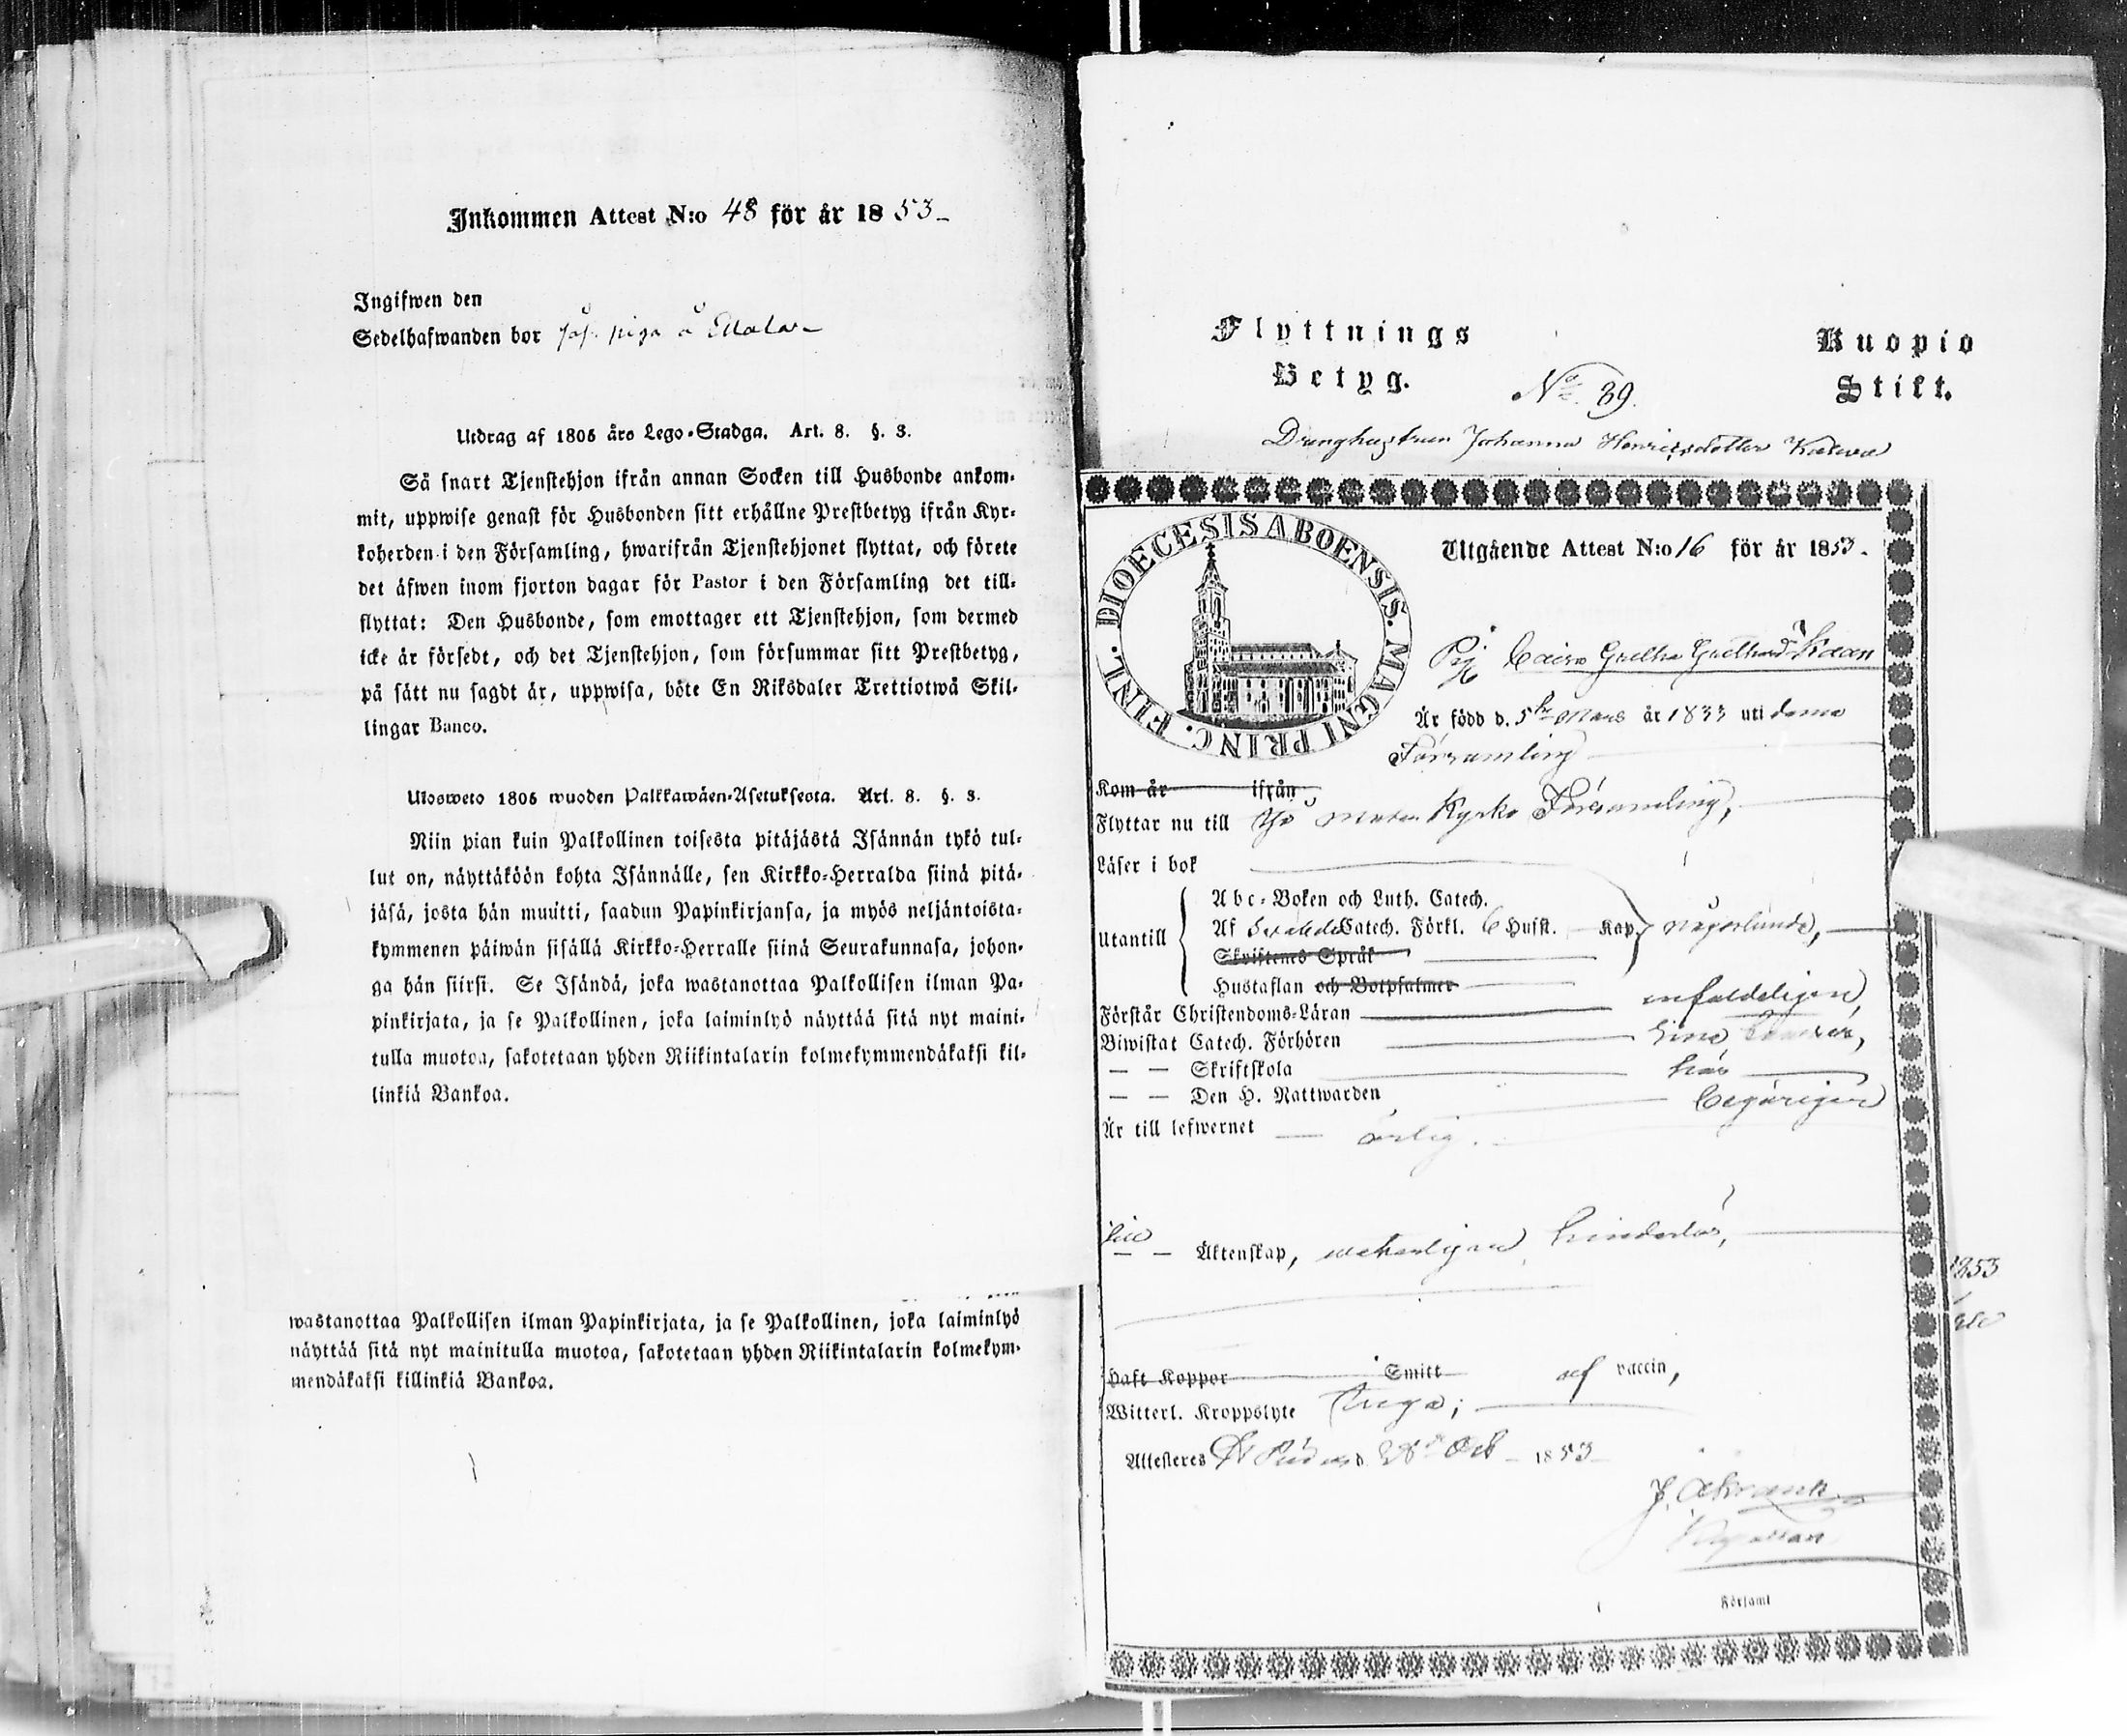 Inkommen Attest N:o 48 för år 1853
Ingifwen den
Sedelhafwanden bor piga å
Utdrag af 1805 års Lego-Stadga. Art. 8. §. 3.
Så snart Tjenstehjon ifrån annan Socken till Husbonde ankom-
mit, uppwise genast för Husbonden sitt erhållne Prestbetyg ifrån Kyr-
koherden i den Församling, hwarifrån Tjenstehjonet flyttat, och förete
det äfwen inom fjorton dagar för Pastor i den Församling det till-
flyttat: Den Husbonde, som emottager ett Tjenstehjon, som dermed
icke är försedt, och det Tjenstehjon, som försummar sitt Prestbetyg,
på sätt nu sagdt är, uppwisa, böte En Riksdaler Trettiotwå Skil-
lingar Banco.
Ulosweto 1805 wuoden Palkkawäen-Asetuksesta. Art. 8. §. 3.
Niin pian kuin Palkollinen toisesta pitäjästä Isännän tykö tul-
lut on, näyttäköön kohta Isännälle, sen Kirkko-Herralda siinä pitä-
jäsä, josta hän muutti, saadun Papinkirjansa, ja myös neljäntoista-
kymmenen päiwän sisällä Kirkko-Herralle siinä Seurakunnasa, johon-
ga hän siirsi. Se Isändä, joka wastanottaa Palkollisen ilman Pa-
pinkirjata, ja se Palkollinen, joka laiminlyö näyttää sitä nyt maini-
tulla muotoa, sakotetaan yhden Riikintalarin kolmekymmendäkaksi kil-
linkiä Bankoa.
wastanottaa Palkollisen ilman Papinkirjata, ja se Palkollinen, joka laiminlyö
näyttää sitä nyt mainitulla muotoa, sakotetaan yhden Riikintalarin kolmekym-
mendäkaksi killinkiä Bankoa.
Flyttnings
Betyg.
No 39.
Kuopio
Stift.
Drenghustrun Johanna Henricsdotter
DIOECESIS ABOENSIS. MAGNI PRINC. FINL.
Utgående Attest N:o 16 för år 1853.
Pig. Caisa Gretha
Är född d. 5te Mars år 1833 uti denna
Församling
Kom år ifrån
Flyttar nu till Kyrko Församling,
Läser i bok
Abc-Boken och Luth. Catech.
Utantill Af Svebel. Catech. Förkl. 6 Hufst. Kap. någorlunda,
Skriftenes Språk
Hustaflan och Botpsalmer
Förstår Christendoms-Läran enfaldeligen
Biwistat Catech. Förhören sine
— — Skriftskola här
— — Den H. Nattwarden begärigen
Är till lefwernet ärlig.
till
— — Äktenskap, hinderlös,
1853
Haft Koppor Smitt af vaccin,
Witterl. Kroppslyte inga;
Attesteras d. 28de Oct. 1853
Församl